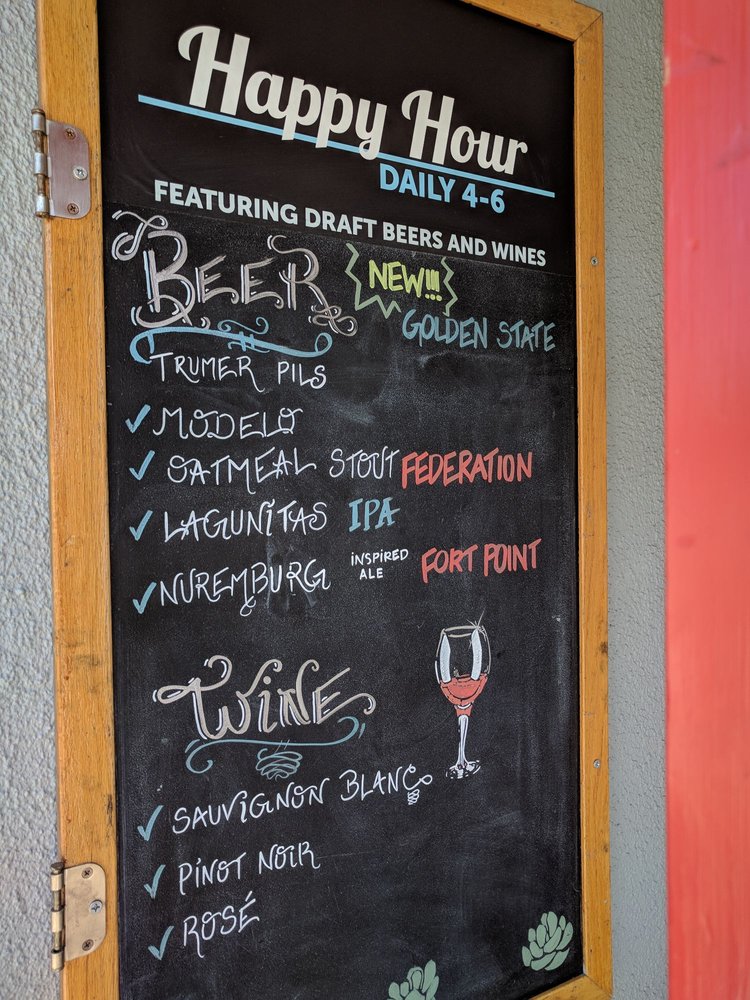 Happy Hour
DAILY 4-6
FEATURING DRAFT BEERS AND WINES
BEER NEW!!!
GOLDEN STATE
TRUMER PILS
MODELO
OATMEAL STOUT FEDERATION
LAGUNITAS IPA
NUREMBURG INSPIRED ALE FORT POINT
WINE
SAUVIGNON BLANC
PINOT NOIR
ROSÉ